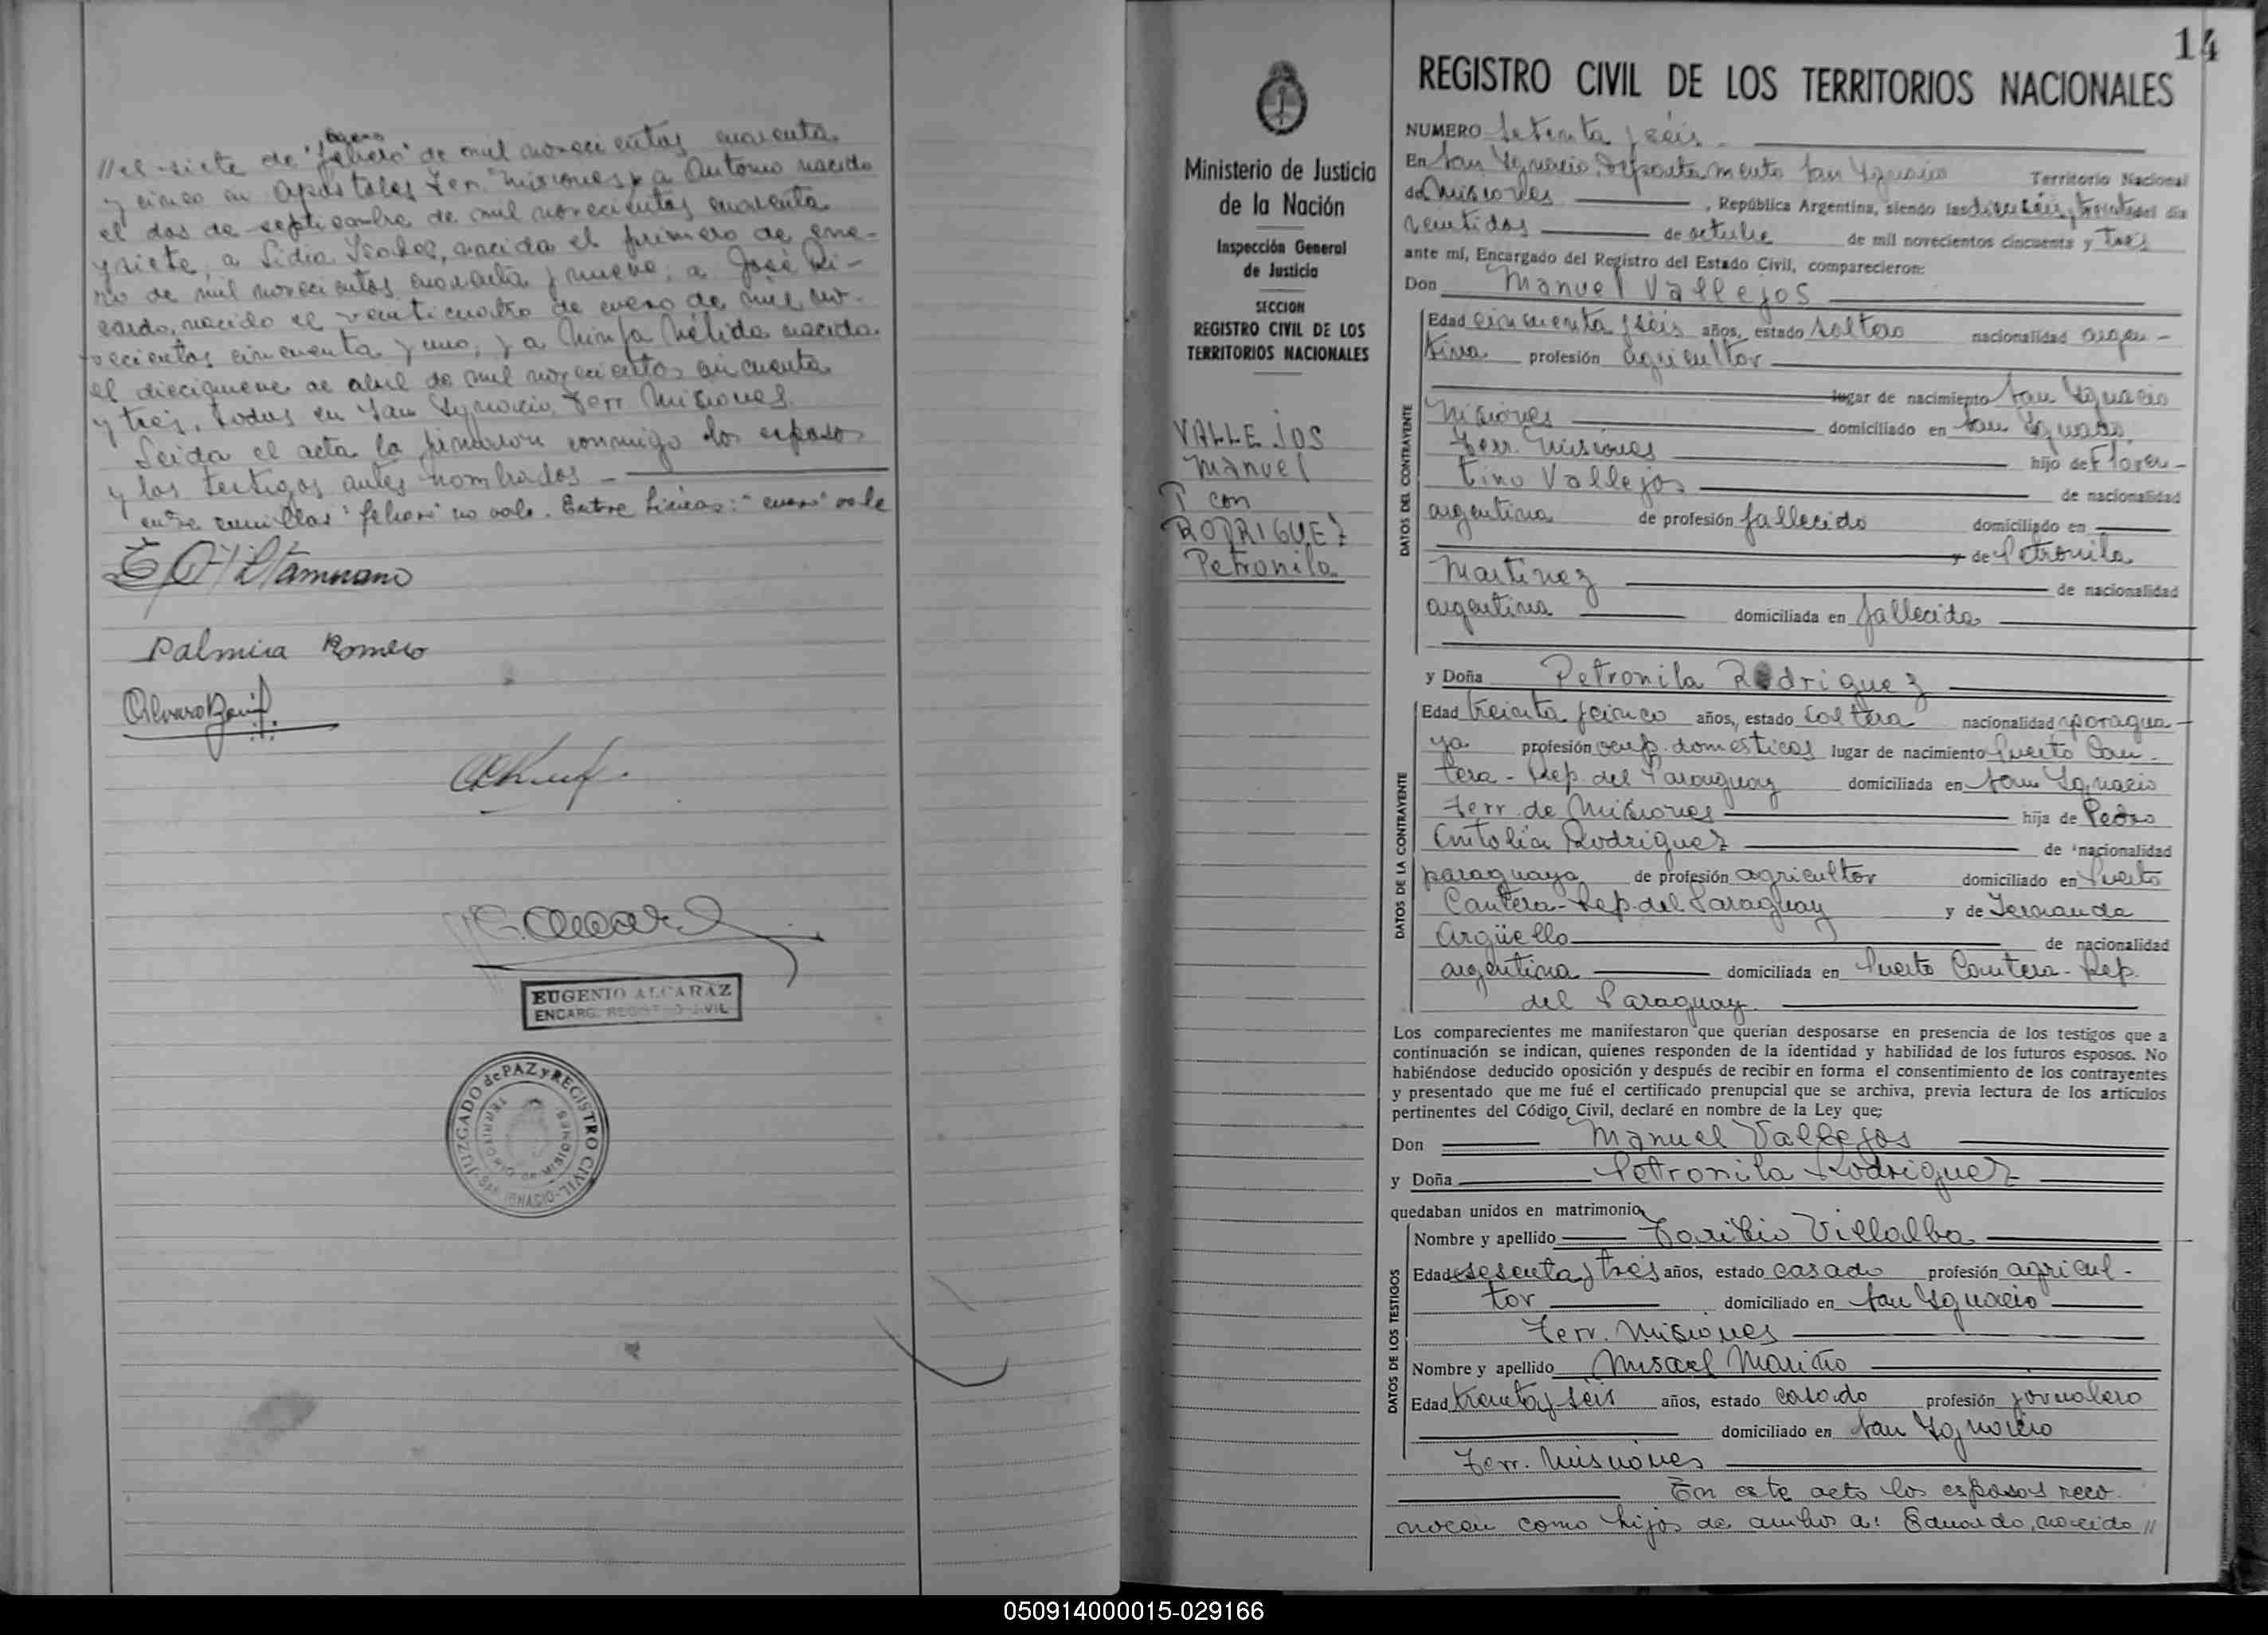 //el siete de "febrero" enero de mil novecientos cuarenta
y cinco en Apóstoles Terr. Misiones, a Antonio nacido
el dos de septiembre de mil novecientos cuarenta
y siete, a Lidia Isabel, nacida el primero de ene-
ro de mil novecientos cuarenta y nueve; a José Ri-
cardo, nacido el veinticuatro de enero de mil no-
vecientos cincuenta y uno; y a Ninfa Nélida nacida
el diecinueve de abril de mil novecientos cincuenta
y tres, todos en San Ignacio, Terr. Misiones.
Leida el acta la firmaron conmigo los esposos
y los testigos antes nombrados
entre comillas "febrero" no vale. Entre lineas: "enero" vale
Palmira Romero
EUGENIO ALCARAZ
ENCARG. REGISTRO CIVIL
JUZGADO de PAZ y REGISTRO CIVIL
SAN IGNACIO
TERRITORIO DE MISIONES
14
Ministerio de Justicia
de la Nación
Inspección General
de Justicia
SECCION
REGISTRO CIVIL DE LOS
TERRITORIOS NACIONALES
VALLEJOS
Manuel
con
RODRIGUEZ
Petronila
REGISTRO CIVIL DE LOS TERRITORIOS NACIONALES
NUMERO Setenta y seis
En San Ignacio, Departamento San Ignacio Territorio Nacional
de Misiones, República Argentina, siendo las dieciseis y treinta del día
veintidos de octubre de mil novecientos cincuenta y tres
ante mí, Encargado del Registro del Estado Civil, comparecieron:
Don Manuel Vallejos
DATOS DEL CONTRAYENTE
Edad cincuenta y seis años, estado soltero nacionalidad argen-
tina profesión agricultor
lugar de nacimiento San Ignacio
Misiones domiciliado en San Ignacio
Terr. Misiones hijo de Floren-
tino Vallejos de nacionalidad
argentina de profesión fallecido domiciliado en
y de Petronila
Martinez de nacionalidad
argentina domiciliada en fallecida
y Doña Petronila Rodriguez
DATOS DE LA CONTRAYENTE
Edad treinta y cinco años, estado soltera nacionalidad paragua-
ya profesión ocup. domesticas lugar de nacimiento Puerto Can-
tera - Rep. del Paraguay domiciliada en San Ignacio
Terr. de Misiones hija de Pedro
Antolín Rodriguez de nacionalidad
paraguaya de profesión agricultor domiciliado en Puerto
Cantera - Rep. del Paraguay y de Fernanda
Argüello de nacionalidad
argentina domiciliada en Puerto Cantera - Rep.
del Paraguay
Los comparecientes me manifestaron que querían desposarse en presencia de los testigos que a
continuación se indican, quienes responden de la identidad y habilidad de los futuros esposos. No
habiéndose deducido oposición y después de recibir en forma el consentimiento de los contrayentes
y presentado que me fué el certificado prenupcial que se archiva, previa lectura de los artículos
pertinentes del Código Civil, declaré en nombre de la Ley que;
Don Manuel Vallejos
y Doña Petronila Rodriguez
quedaban unidos en matrimonio
DATOS DE LOS TESTIGOS
Nombre y apellido Toribio Villalba
Edad sesenta y tres años, estado casado profesión agricul-
tor domiciliado en San Ignacio
Terr. Misiones
Nombre y apellido Misael Mariño
Edad treinta y seis años, estado casado profesión jornalero
domiciliado en San Ignacio
Terr. Misiones
En este acto los esposos reco-
nocen como hijos de ambos a: Eduardo, nacido //
050914000015-029166